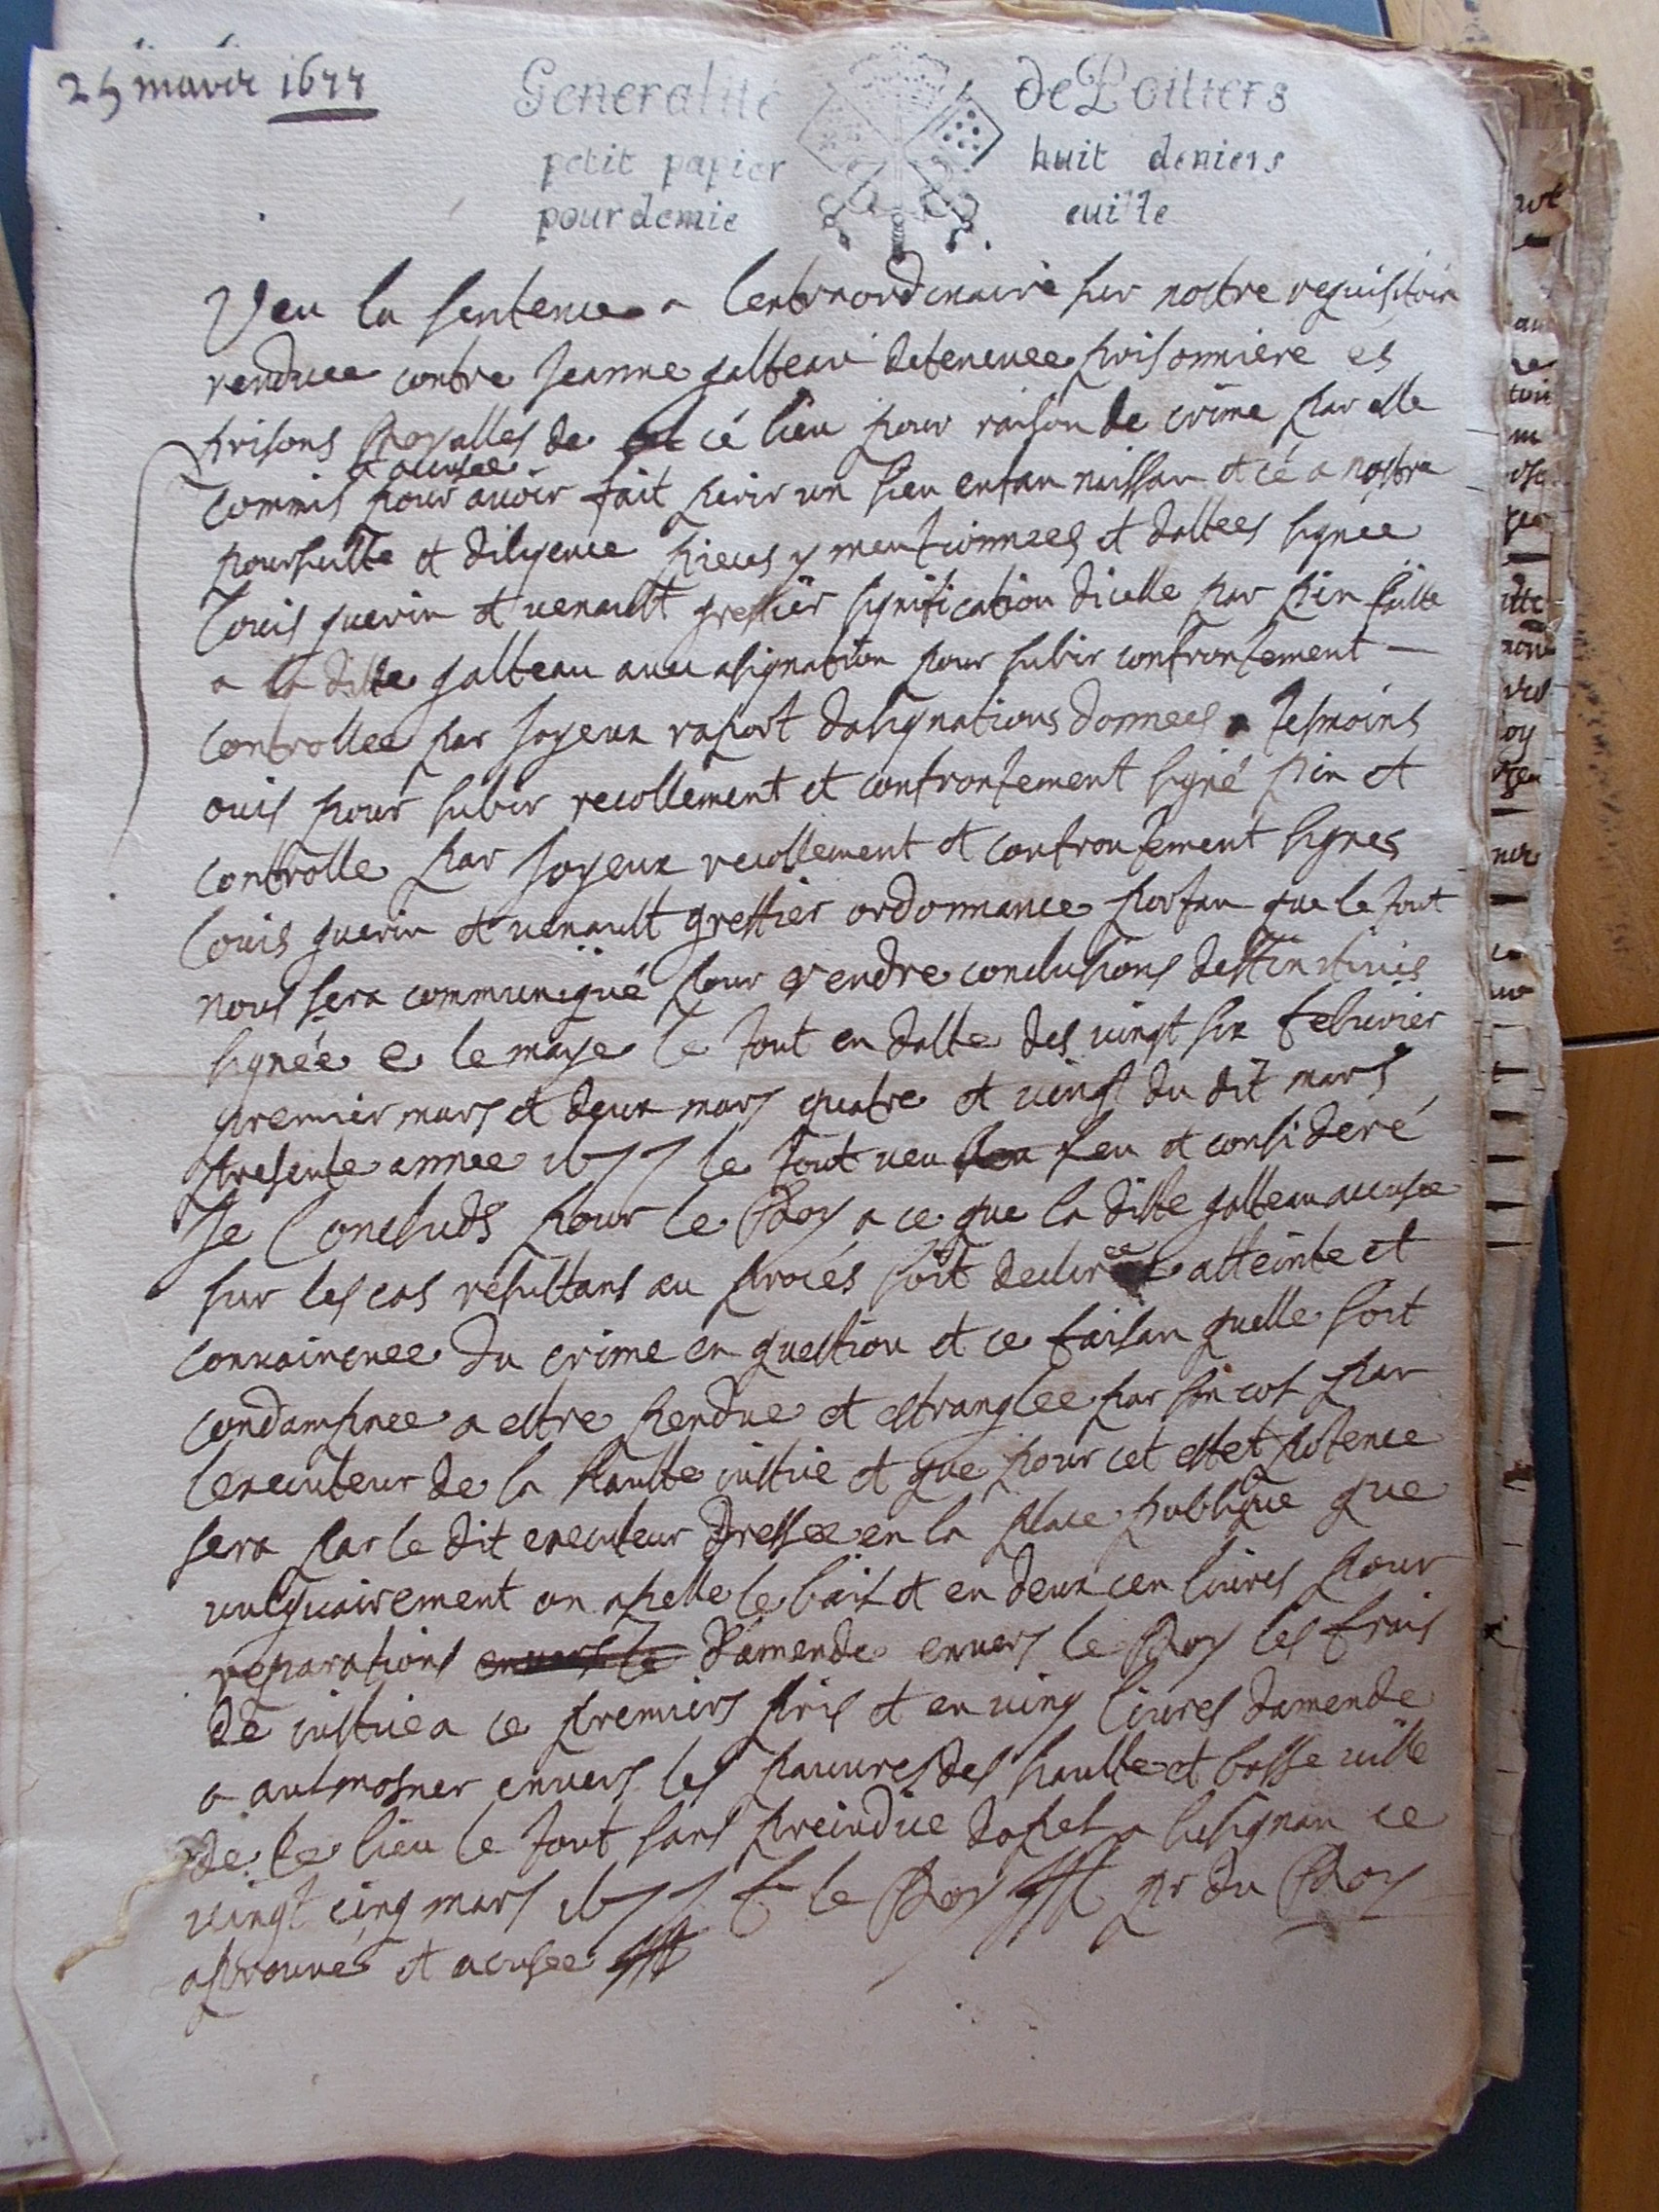 25 mars 1677
Generalité de Poitiers
petit papier huit deniers
pour demie euille
Veu la sentence a lextraordinaire sur nostre requisitoire
rendue contre Jeanne galteau detenuee prisonniere es
prisons Royalles de cé lieu pour raison de crime par elle
a acusee
commis pour avoir fait perir un sien enfan naissan et cé a nostre
poursuitte et diligence pieces y mentionnees et dattees signée
Louis guerin et uenault greffier signification dicelle par pin faitte
a la ditte galteau avec asignation pour subir confrontement —
controllee par Joyeux raport dasignations donnees a tesmoins
ouis pour subir recollement et confrontement signé pin et
controlle par Joyeux recollement et confrontement signes
Louis guerin et uenault greffier ordonnance portan que le tout
nous sera communiqué pour rendre conclusions deffinitives
signée e le maye le tout en datte des vingt six febvrier
premier mars et deux mars quatre et vingt du dit mars
presente annee 1677 le tout veu leu et consideré
Je Concluds pour le Roy a ce que la ditte galteau accusee
sur les cas resultans au procés soit decleree atteinte et
convaincuee du crime en question et ce faisan quelle soit
condampnee a estre pendue et estranglee par son col par
lexecuteur de la haulte iustice et que pour cet effet potence
sera par le dit executeur dressee en la place publique que
vulguairement on apelle le bail et en deux cen livres pour
reparations envers le d'amende envers le Roy les frais
de iustice a ce premiers pris et en ving livres damende
a aulmosner envers les pauvres des haulte et basse ville
de ce lieu le tout sans preiudice dapel a lusignan ce
vingt cinq mars 1677 F le Roy pr du Roy
aprouvé et acusee